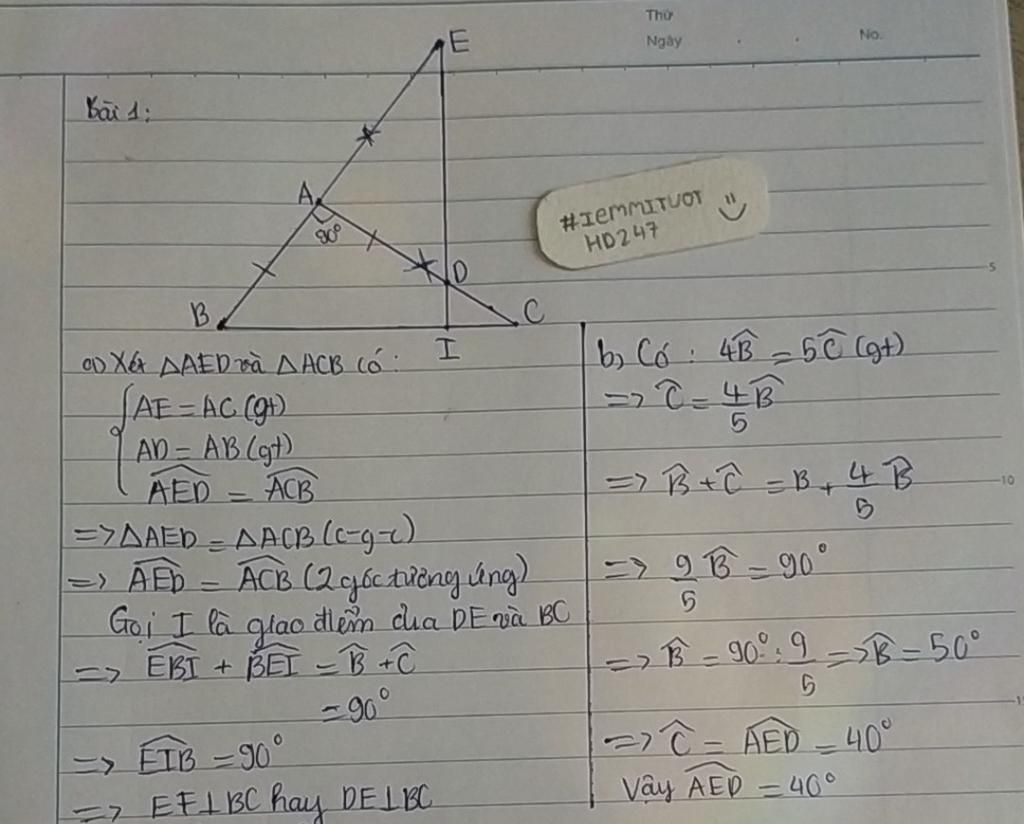 Thứ
Ngày . . No.
Bài 1:
E
A
90°
D
B
C
I
#IEMMITUOT
HD247
5
10
a) Xét △AED và △ACB có:
AE = AC (gt)
AD = AB (gt)
\widehat{AED} = \widehat{ACB}
=> △AED = △ACB (c-g-c)
=> \widehat{AED} = \widehat{ACB} (2 góc tương ứng)
Gọi I là giao điểm của DE và BC
=> \widehat{EBI} + \widehat{BEI} = \widehat{B} + \widehat{C}
= 90°
=> \widehat{EIB} = 90°
=> EF ⊥ BC hay DE ⊥ BC
b, Có : 4\widehat{B} = 5\widehat{C} (gt)
=> \widehat{C} = \frac{4}{5}\widehat{B}
=> \widehat{B} + \widehat{C} = B + \frac{4}{5}\widehat{B}
=> \frac{9}{5}\widehat{B} = 90°
=> \widehat{B} = 90° : \frac{9}{5} => \widehat{B} = 50°
=> \widehat{C} = \widehat{AED} = 40°
Vậy \widehat{AED} = 40°